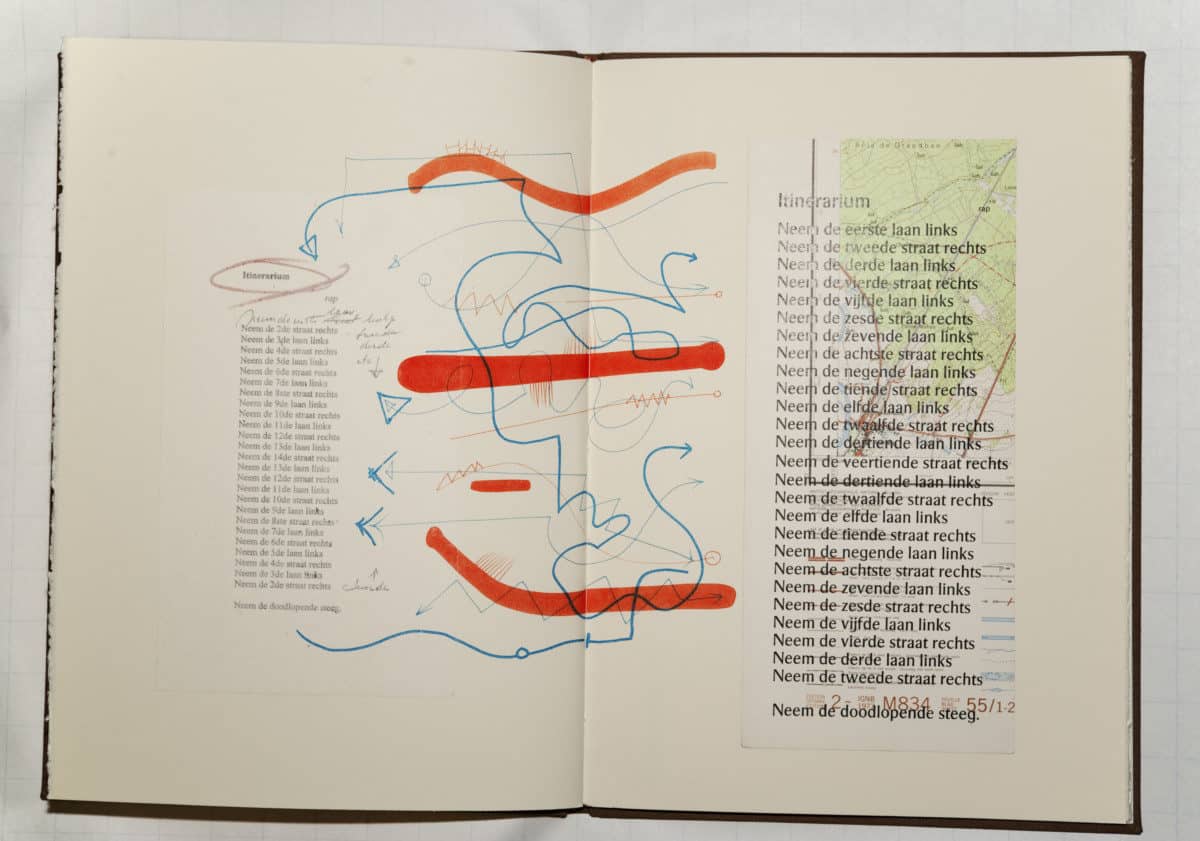 Itinerarium
rap
laan
tweede
derde
etc!
Neem de 2de straat rechts
Neem de 3de laan links
Neem de 4de straat rechts
Neem de 5de laan links
Neem de 6de straat rechts
Neem de 7de laan links
Neem de 8ste straat rechts
Neem de 9de laan links
Neem de 10de straat rechts
Neem de 11de laan links
Neem de 12de straat rechts
Neem de 13de laan links
Neem de 14de straat rechts
Neem de 13de laan links
Neem de 12de straat rechts
Neem de 11de laan links
Neem de 10de straat rechts
Neem de 9de laan links
Neem de 8ste straat rechts
Neem de 7de laan links
Neem de 6de straat rechts
Neem de 5de laan links
Neem de 4de straat rechts
Neem de 3de laan links
Neem de 2de straat rechts
Neem de doodlopende steeg.
Itinerarium
rap
Neem de eerste laan links
Neem de tweede straat rechts
Neem de derde laan links
Neem de vierde straat rechts
Neem de vijfde laan links
Neem de zesde straat rechts
Neem de zevende laan links
Neem de achtste straat rechts
Neem de negende laan links
Neem de tiende straat rechts
Neem de elfde laan links
Neem de twaalfde straat rechts
Neem de dertiende laan links
Neem de veertiende straat rechts
Neem de dertiende laan links
Neem de twaalfde straat rechts
Neem de elfde laan links
Neem de tiende straat rechts
Neem de negende laan links
Neem de achtste straat rechts
Neem de zevende laan links
Neem de zesde straat rechts
Neem de vijfde laan links
Neem de vierde straat rechts
Neem de derde laan links
Neem de tweede straat rechts
2- IGNB M834 55/1-2
Neem de doodlopende steeg.